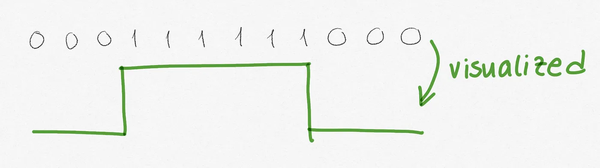 0 0 0 1 1 1 1 1 1 0 0 0
visualized